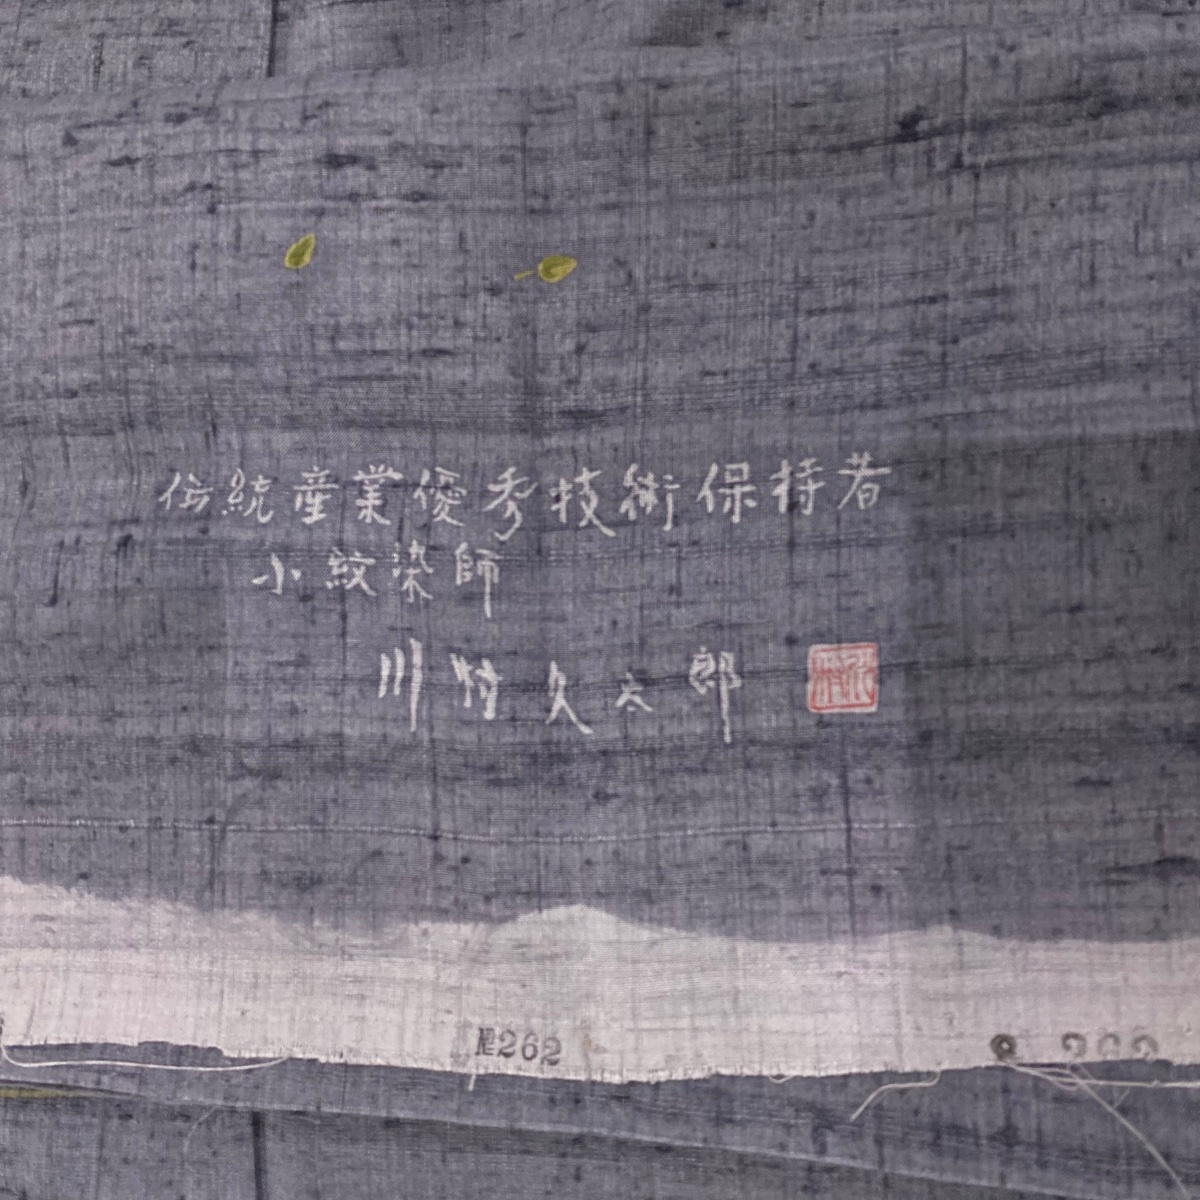 伝統産業優秀技術保持者
小紋染師
川村久太郎
川村
№262